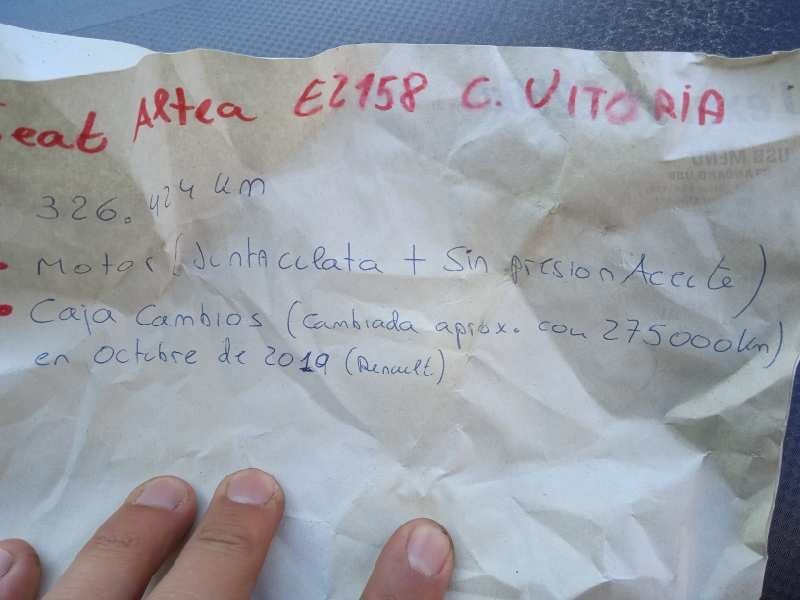 Seat Altea E2158 C. VITORIA
326.424 km
Motor (Junta culata + Sin presion Aceite)
Caja Cambios (Cambiada aprox. con 275000km)
en Octubre de 2019 (Renault.)
USB MENU